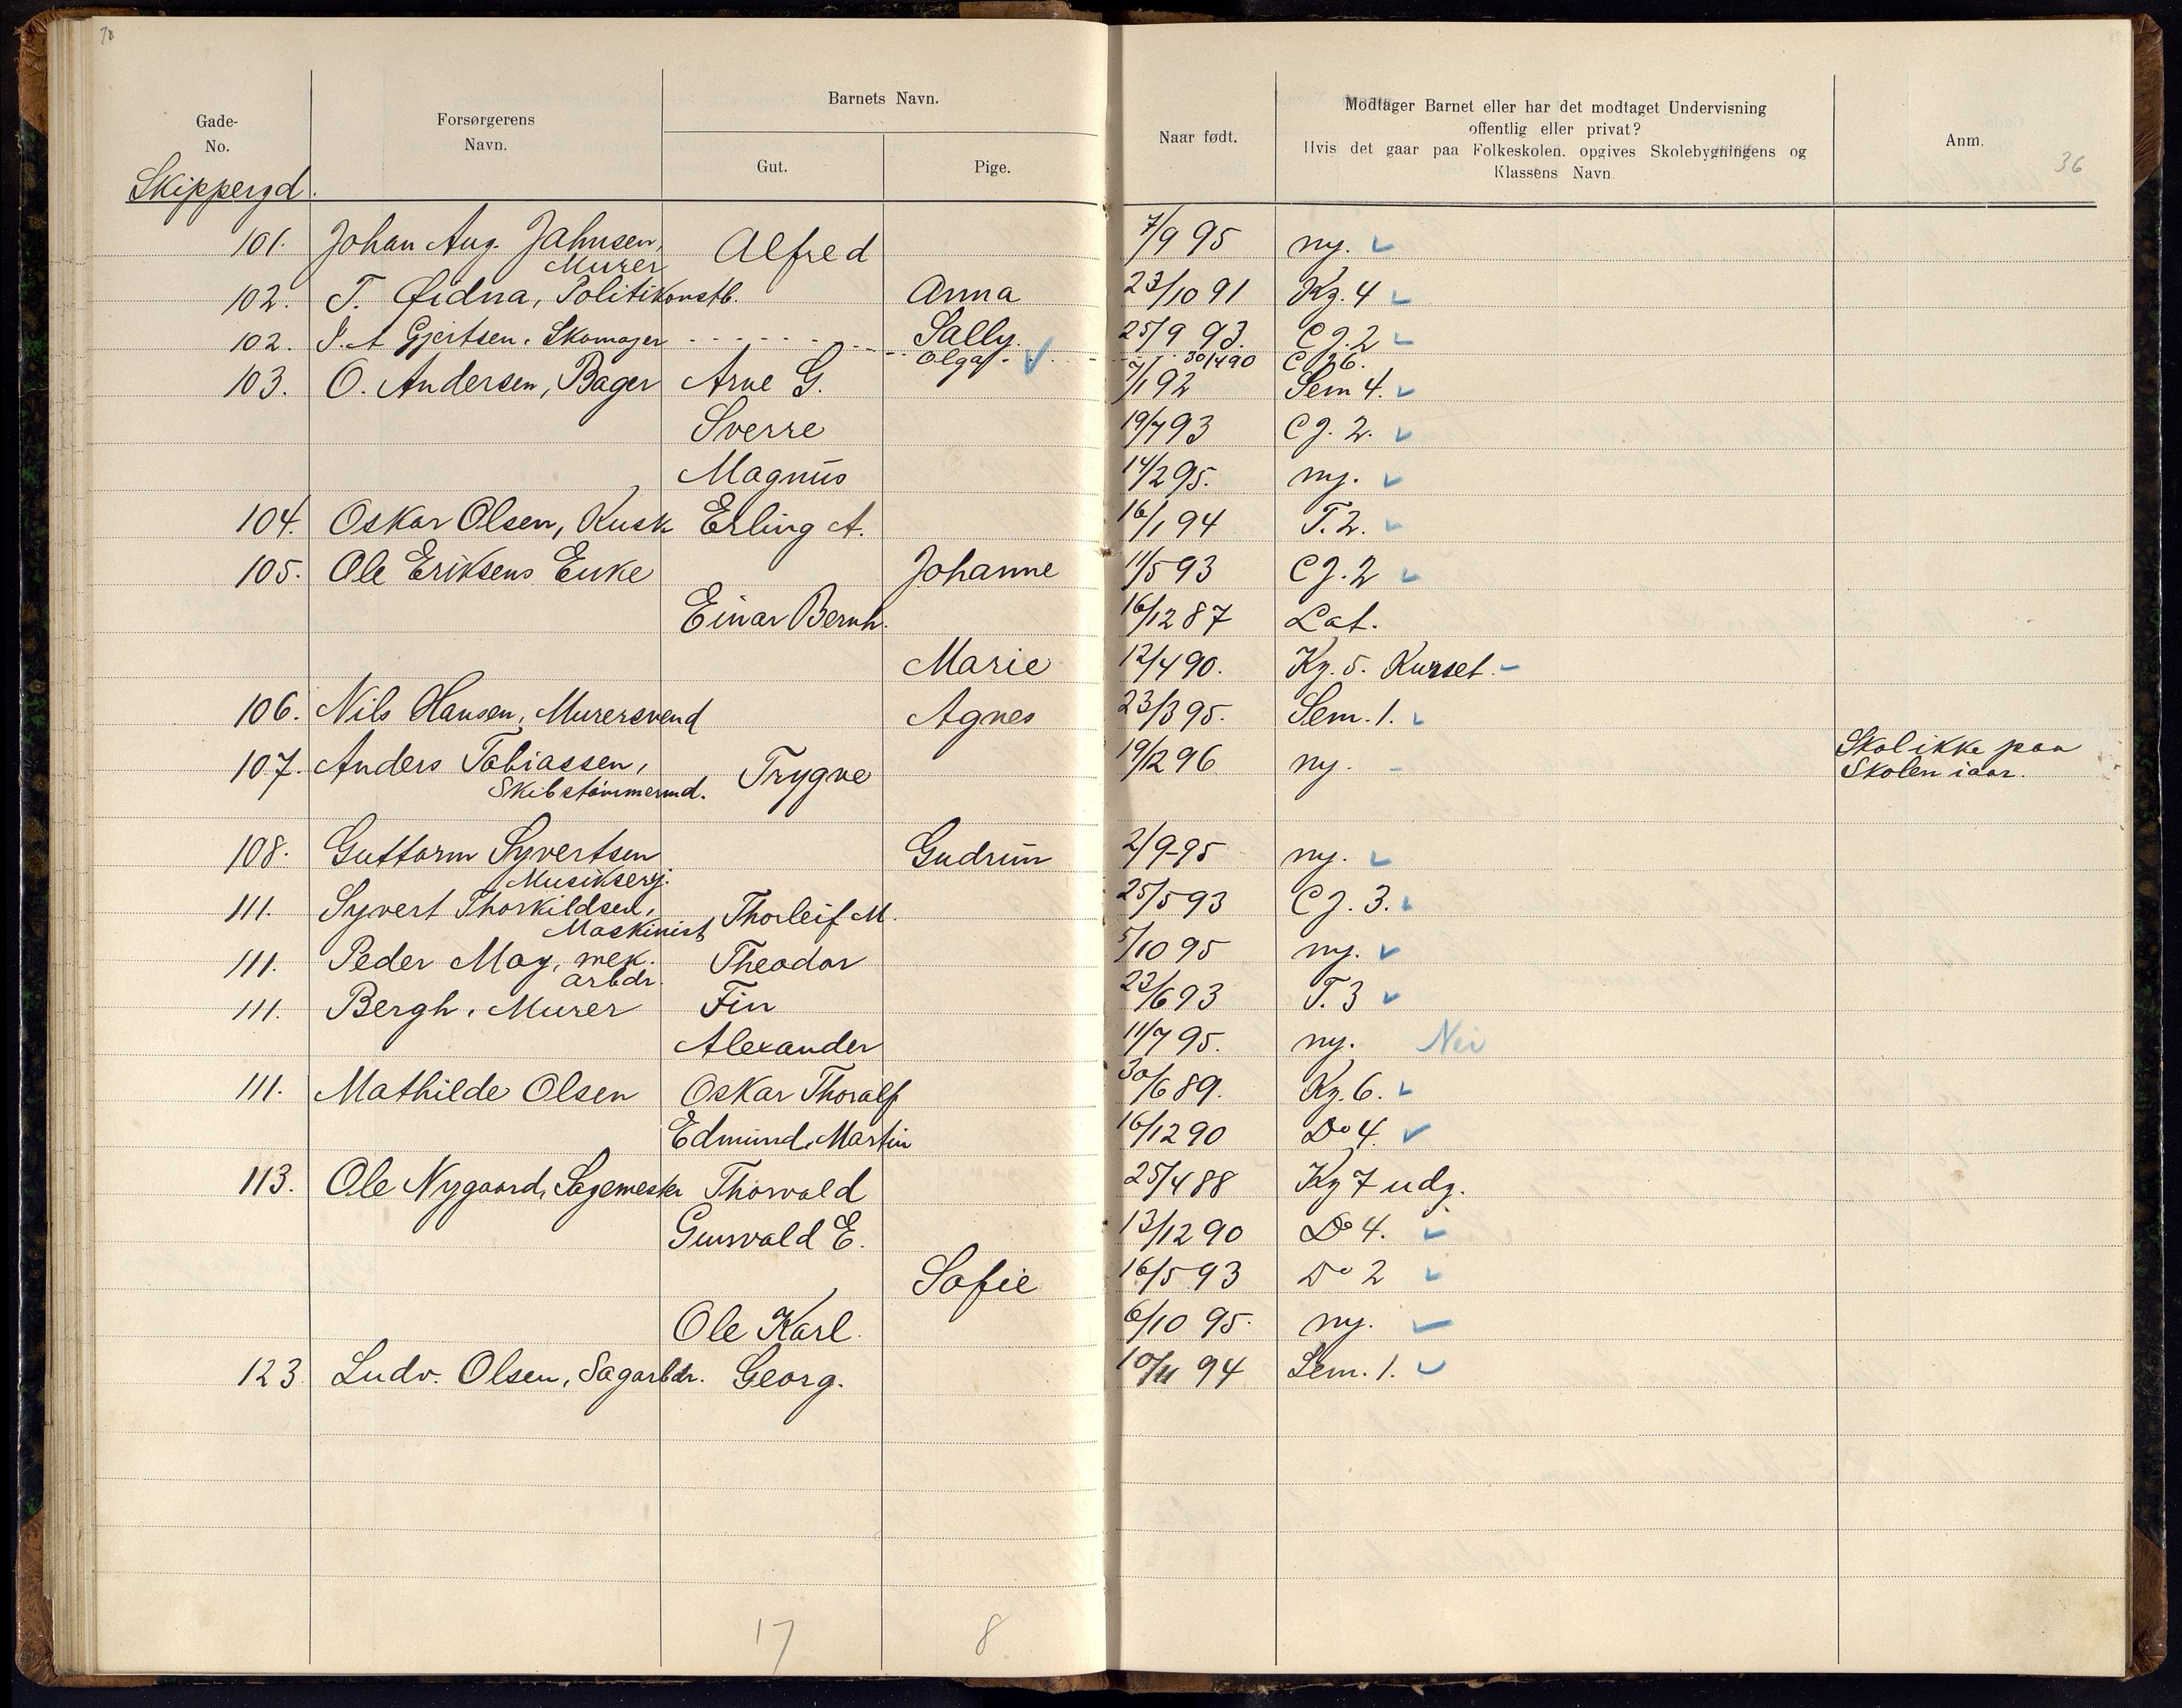 70
Gade-
No.
Forsørgerens
Navn.
Barnets Navn.
Gut.
Pige.
Naar født.
Modtager Barnet eller har det modtaget Undervisning
offentlig eller privat?
Hvis det gaar paa Folkeskolen. opgives Skolebygningens og
Klassens Navn
Anm.
36
Skippergd.
101. Johan Aug. Jahnsen, Murer Alfred 7/9 95 ny.
102. T. Øidna, Politikonstb. Anna 23/10 91 Kg. 4
102. S. A Gjertsen. Skomager Sally 25/9 93. CJ. 2
Olga 30/4 90 CJ 6.
103. O. Andersen, Bager Arne G. 7/1 92 Sem 4.
Sverre 19/7 93 CJ. 2.
Magnus 14/2 95. ny.
104. Oskar Olsen, Kusk Erling A. 16/1 94 T. 2.
105. Ole Eriksens Enke Johanne 11/5 93 CJ. 2
Einar Bernh. 16/12 87 Lat.
Marie 12/4 90. Kg. 5. Kurset.
106. Nils Hansen, Murersvend Agnes 23/3 95. Sem. 1.
107. Anders Tobiassen, Skibstømmermd. Trygve 19/12 96 ny. Skal ikke paa
Skolen iaar.
108. Guttorm Syvertsen Musikserj. Gudrun 2/9-95 ny.
111. Syvert Thorkildsen, Maskinist Thorleif M. 25/5 93 CJ. 3.
111. Peder May, mek. arbdr. Theodor 5/10 95 ny.
111. Bergh, Murer Fin 23/6 93 T. 3
Alexander 11/7 95. ny. Nei
111. Mathilde Olsen Oskar Thoralf 30/6 89. Kg. 6.
Edmund Martin 16/12 90 Do 4.
113. Ole Nygaard, Sagemester Thorvald 25/4 88 Kg 7 udg.
Gunvald E. 13/12 90 Do 4.
Sofie 16/5 93 Do 2
Ole Karl. 6/10 95. ny.
123 Ludv. Olsen, Sagarbdr. Georg. 10/11 94 Sem. 1.
17 8